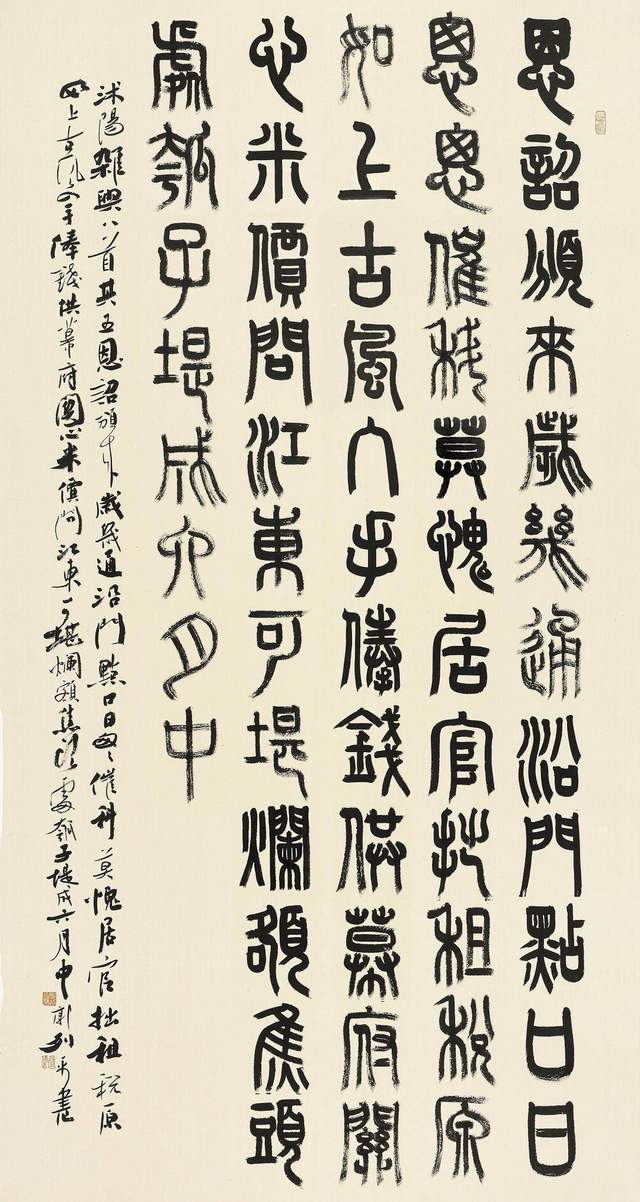 恩詔頒來歲幾通沿門點口日
悤悤催科莫愧居官拙租稅原
如上古風入手俸錢供幕府關
心米價問江東可堪爛額焦頭
處瓠子堤成六月中
沭陽雜興八首其五恩詔頒來歲幾通沿門點口日匆匆催科莫愧居官拙租稅原
如上古風入手俸錢供幕府關心米價問江東可堪爛額焦頭處瓠子堤成六月中郭列平書